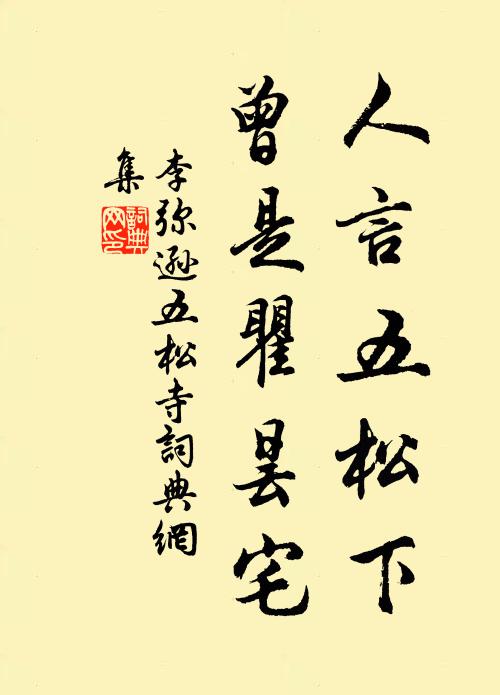 人言五松下
曾是瞿曇宅
李弥遜五松寺詞典網
集
詞典網印